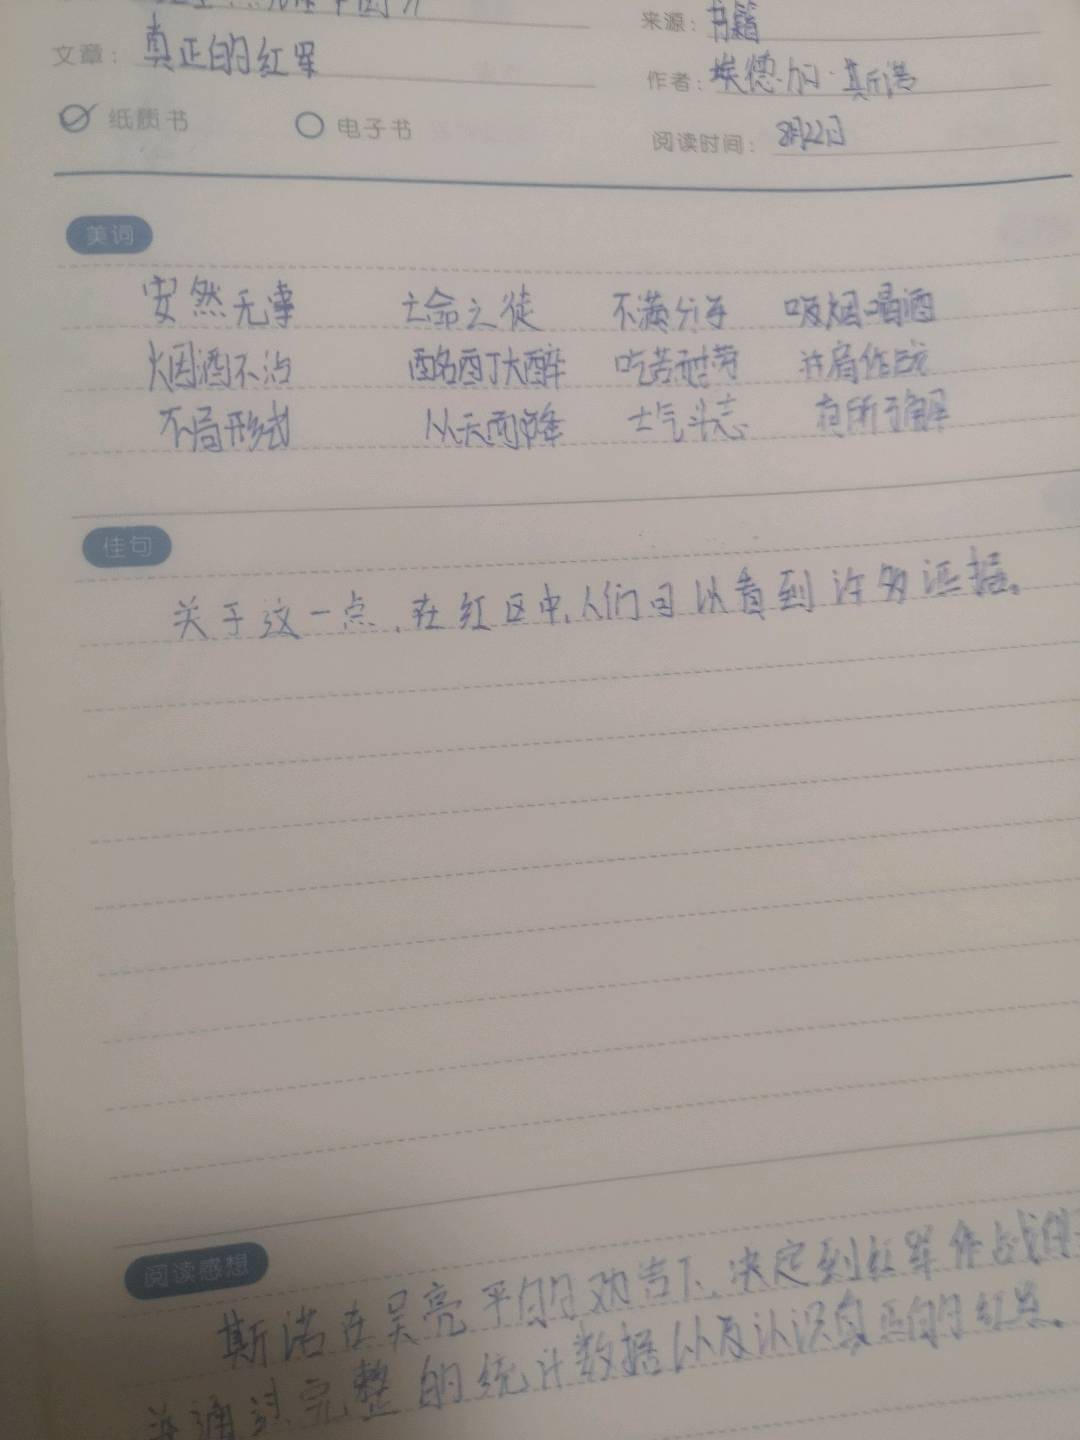 来源：书籍
文章：真正的红军
作者：埃德加·斯诺
纸质书 电子书
阅读时间：8月22日
美词
安然无事 亡命之徒 不满分子 吸烟喝酒
烟酒不沾 酩酊大醉 吃苦耐劳 并肩作战
不局形式 从天而降 士气斗志 有所了解
佳句
关于这一点，在红区中，人们可以看到许多证据。
阅读感想
斯诺在吴亮平的劝告下，决定到红军作战
通过完整的统计数据以及认识真正的红军。